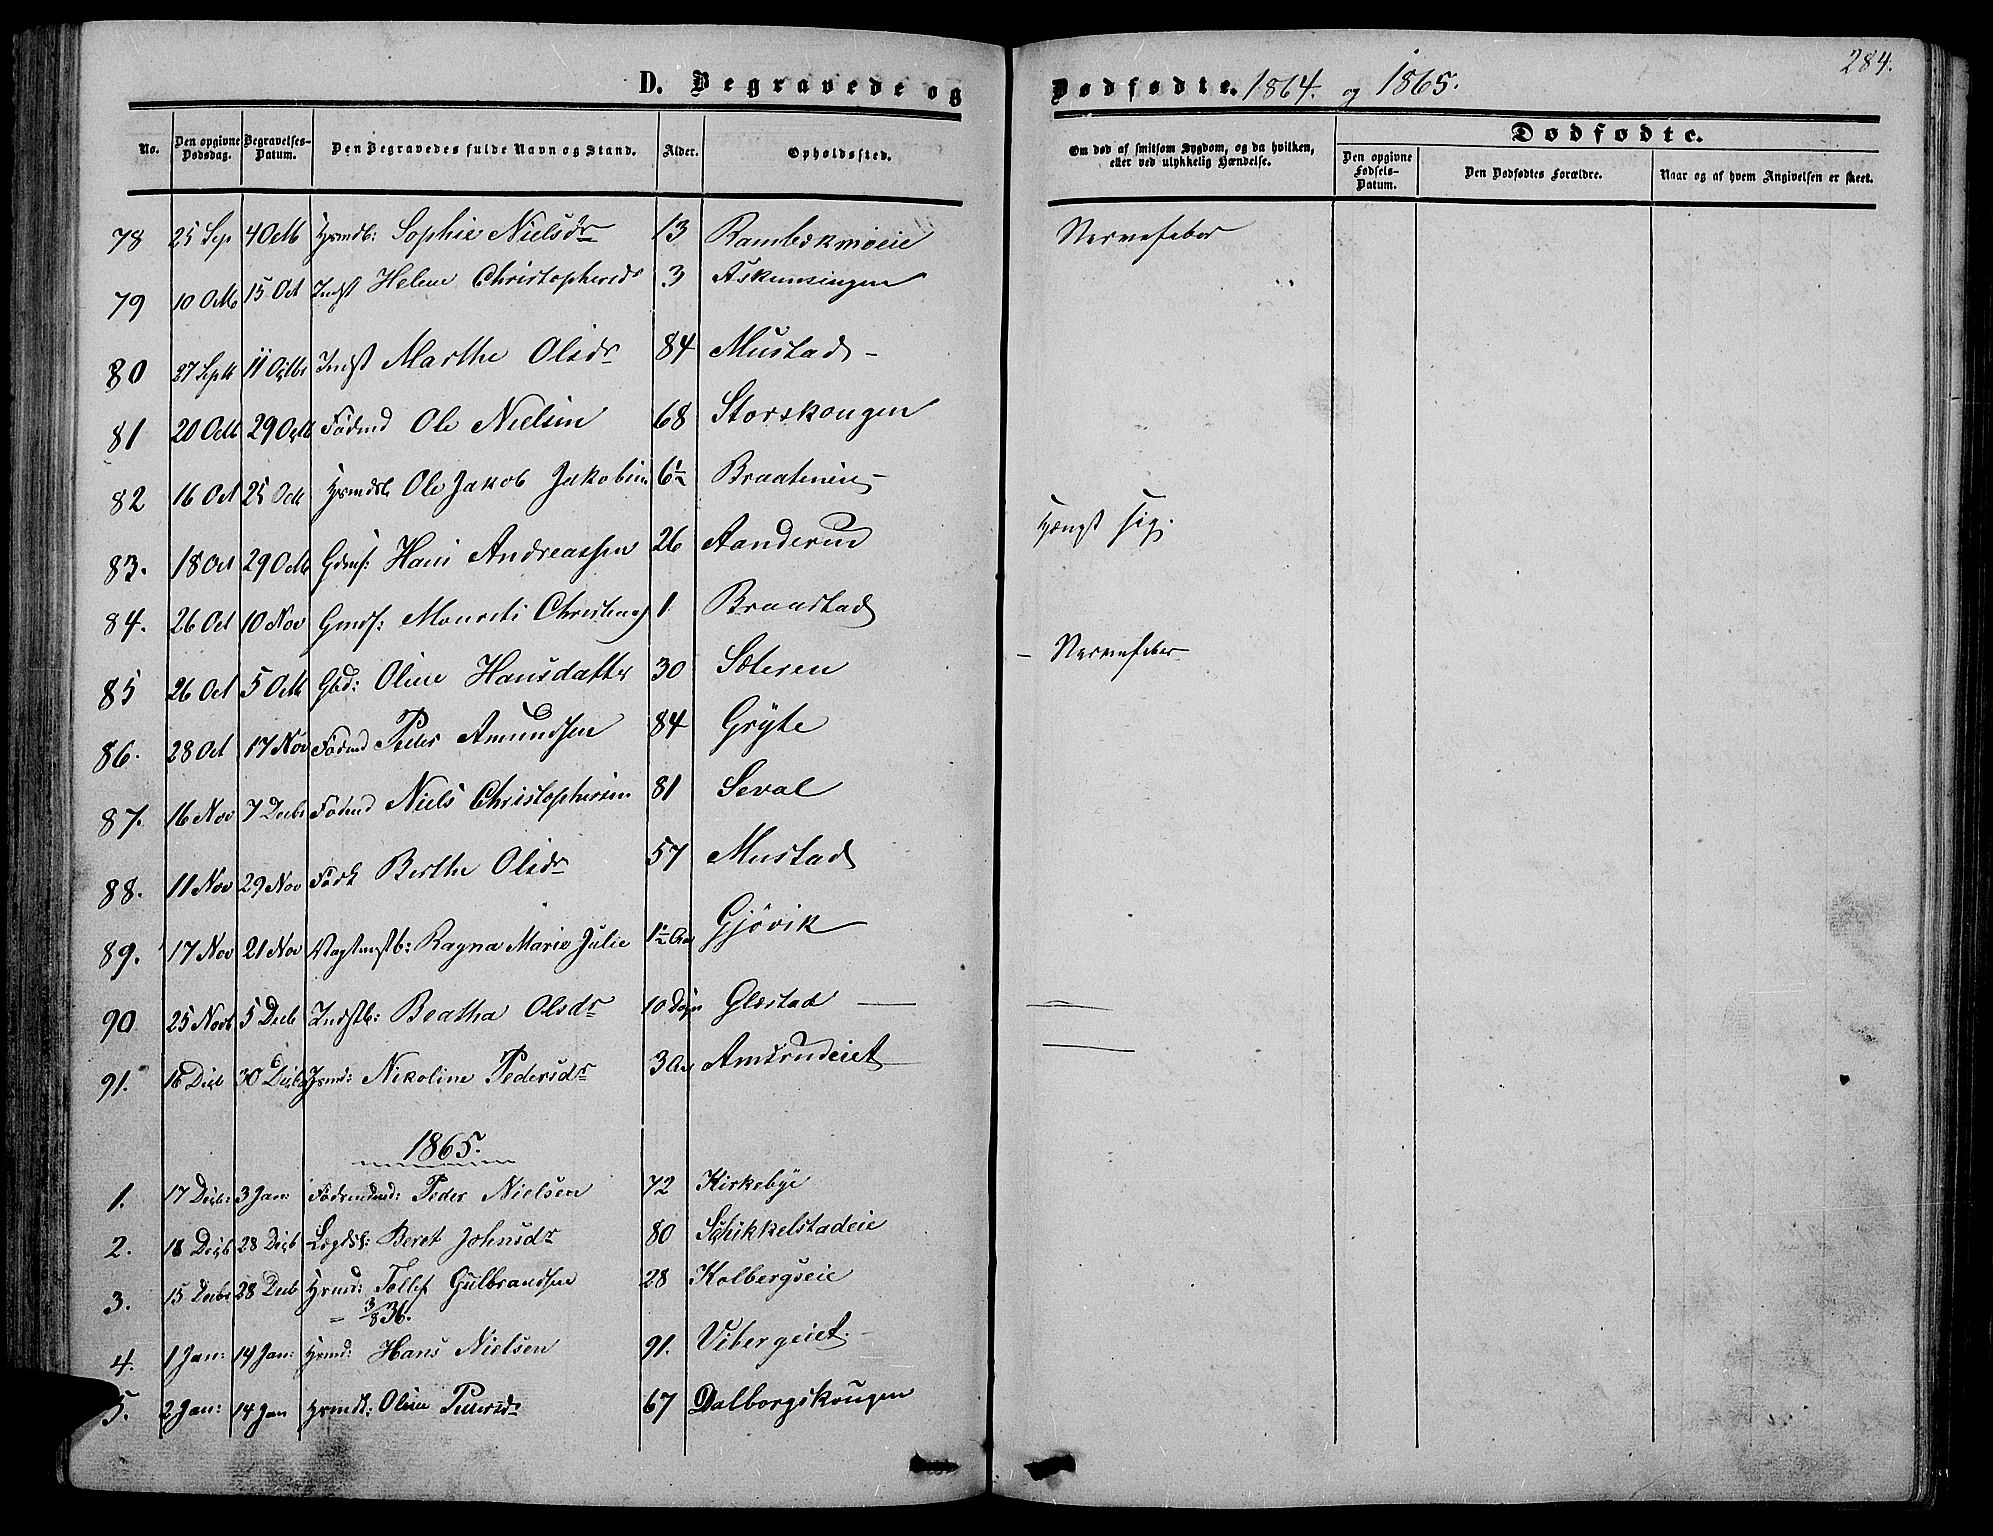 284.
D. Begravede og Dødfødte. 1864. og 1865.
No. Den opgivne Dødsdag. Begravelses-Datum. Den Begravedes fulde Navn og Stand. Alder. Opholdssted. Om død af smitsom Sygdom, og da hvilken, eller ved ulykkelig Hændelse. Dødfødte. Den opgivne Fødsels-Datum. Den Dødfødtes Forældre. Naar og af hvem Angivelsen er skeet.
78 25 Sep 4 Octb Hsmdb: Sophie Nielsdr 13 Rambekmoeie Nervefeber
79 10 Octb 15 Oct Indst Helene Christophersdr 3
80 27 Septb 11 Octbr Indst Marthe Olsdr 84 Mustad
81 20 Octb 29 Octb Födmd Ole Nielsen 68 Storskougen
82 16 Oct 25 Octb Ole Jakob Jakobsen 6½ Braatenie
83. 18 Oct 29 Octb Hans Andreassen 26 Aanderud Hængt sig.
84. 26 Oct 10 Nov 1 Braastad
85 26 Oct 5 Octb Gbd: Oline Hansdatter 30 Sæteren - Nervefeber
86. 28 Oct 17 Nov Födmd Peder Amundsen 84 Gryte
87. 16 Nov 7 Decbr Födmd Niels Christophersen 81 Seval
88. 11 Nov 29 Nov Födk Berthe Olsdr 57 Mustad
89. 17 Nov 21 Nov Ragna Marie Julie 1½ Aar Gjövik
90 25 Novb 5 Decb Indstb: Beatha Olsdr 10 Dage Glæstad
91. 18 Decb 30 Decb Hsmd: Nikoline Pedersdr 3 Aar Amsrudeiet
1865.
1. 17 Decbr: 3 Jan: Födsmdmd: Peder Nielsen 72 Kirkebye
2. 18 Decb 28 Decb Lægdsl: Beret Johnsdr 80 Schikkelstadeie
3. 15 Decbr 28 Decb Hsmd: Tollef Gulbrandsen 28 Kolbergseie
- 3/8 36.
4. 1 Jan: 14 Jan: Hsmd: Hans Nielsen 91. Vibergeiet.
5. 2 Jan: 14 Jan Hsmdk: Oline Pedersdr 67 Dalborgskougen